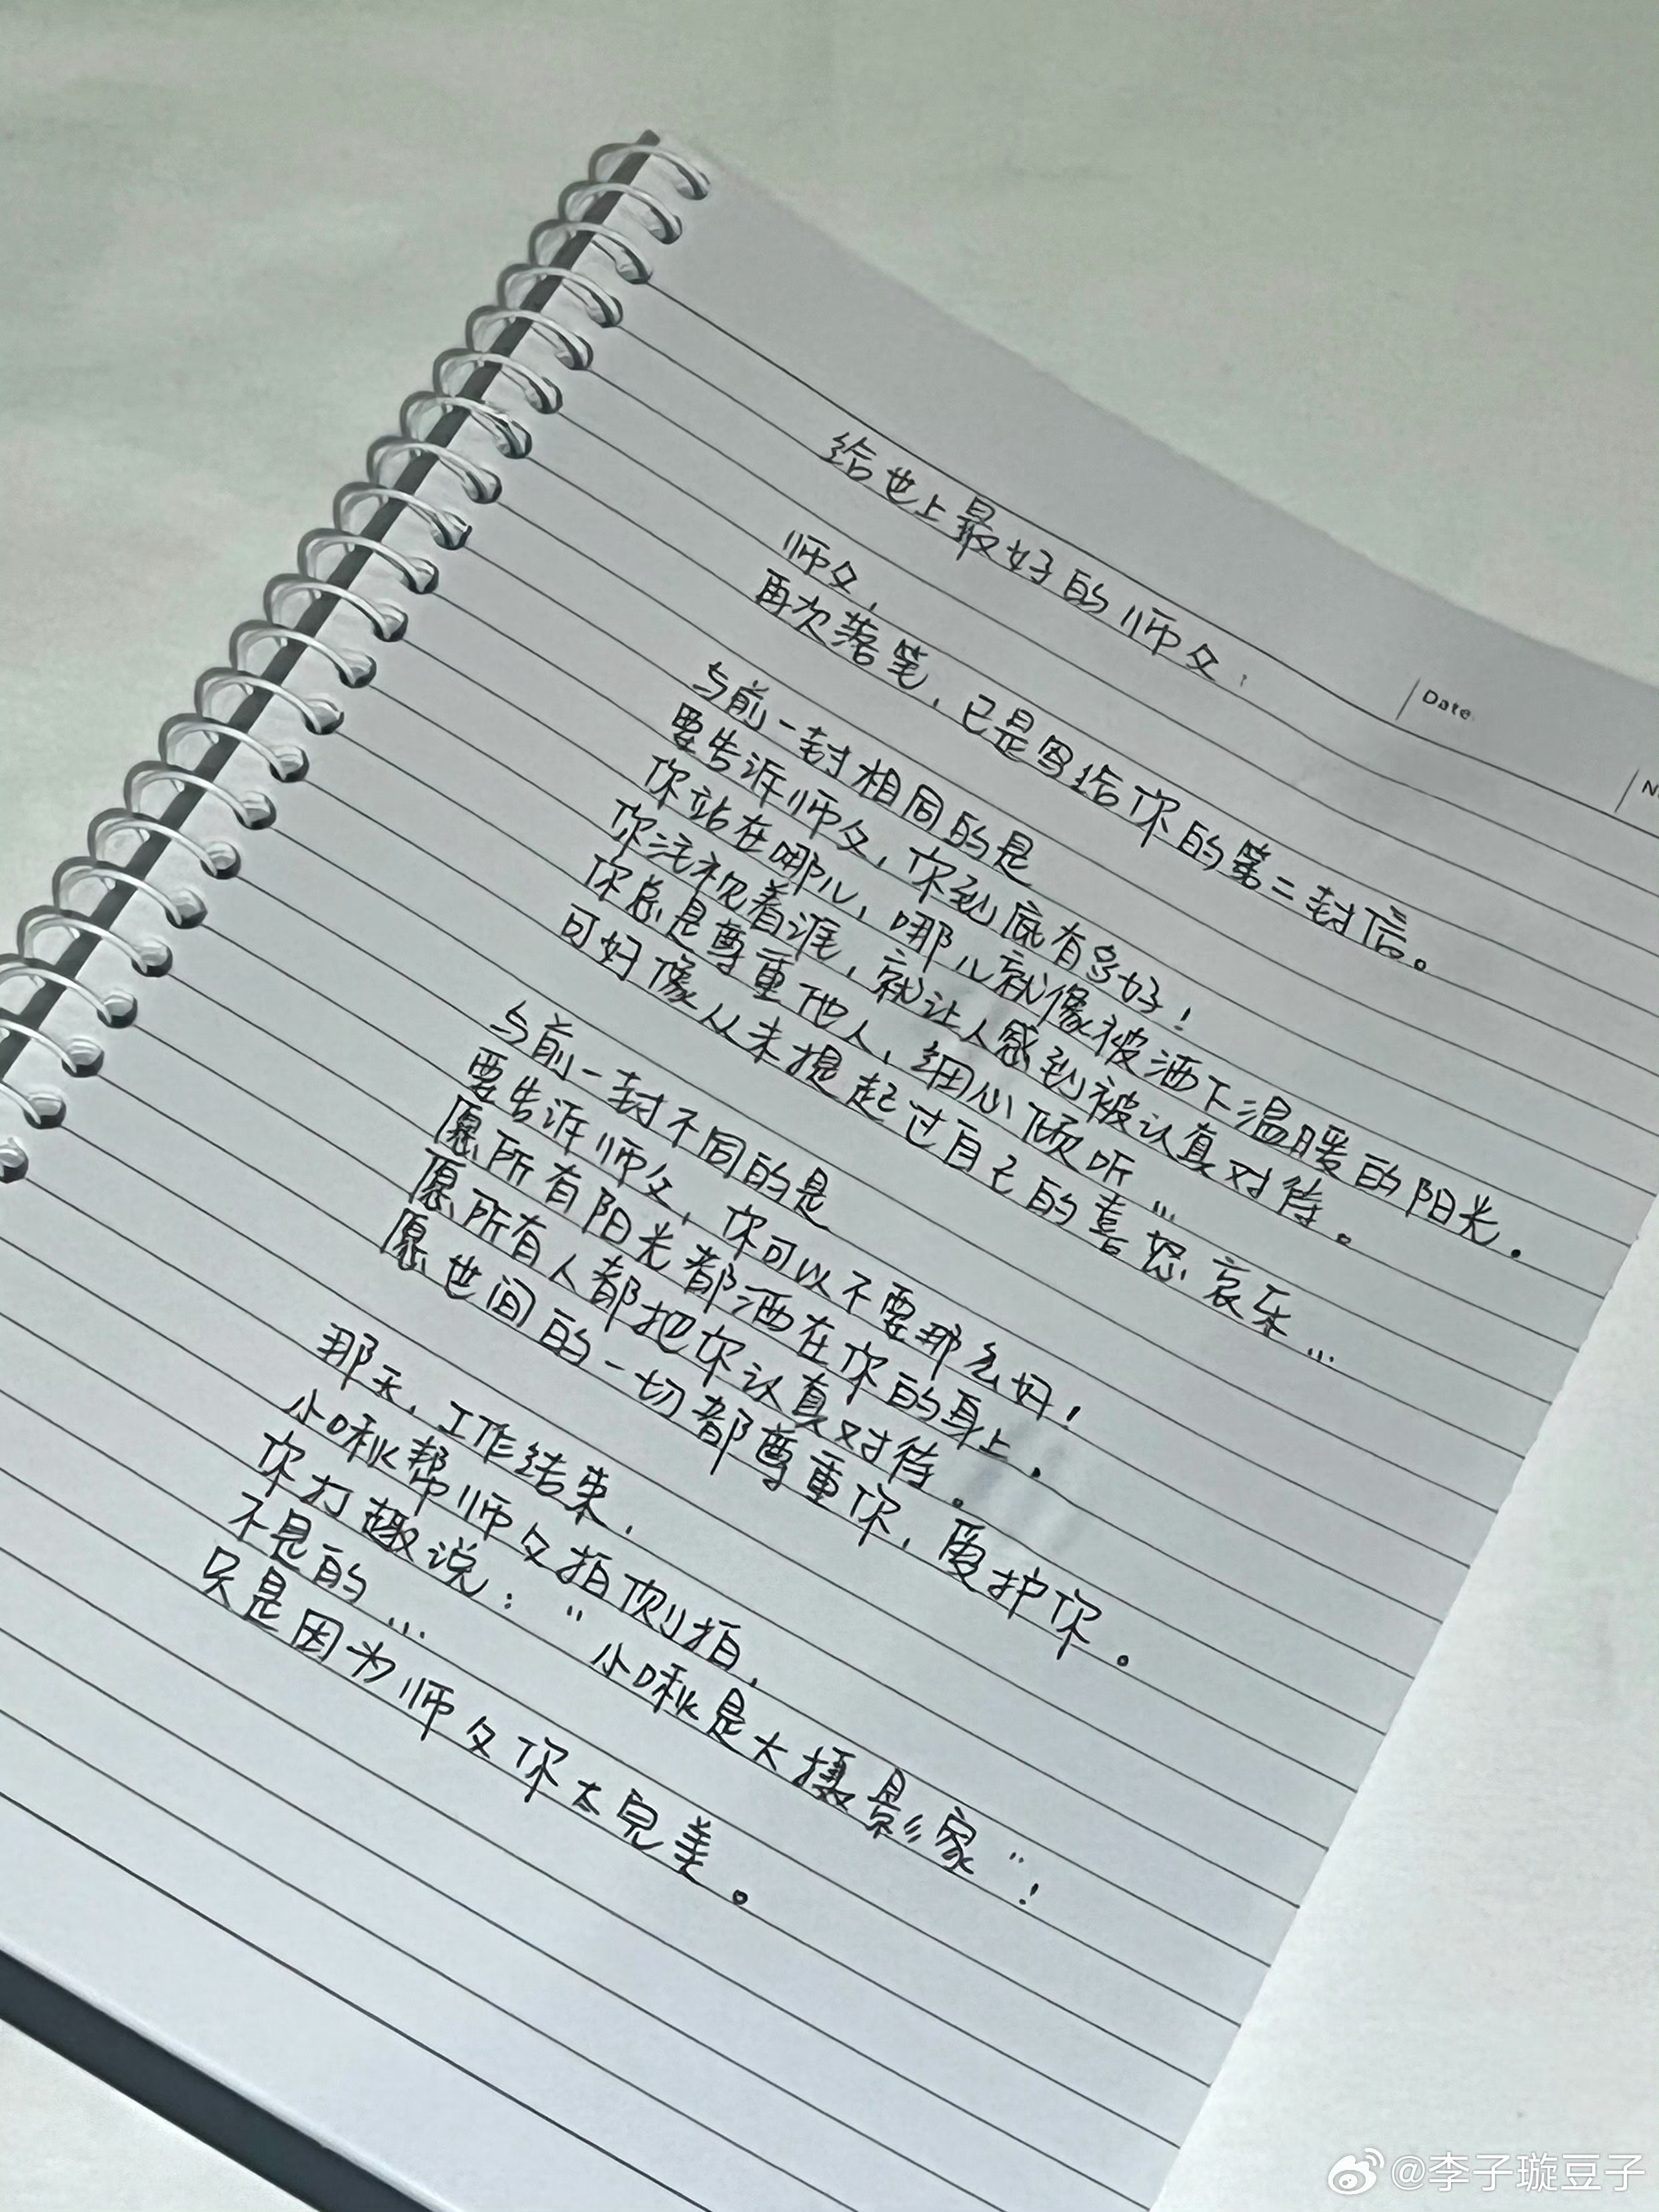 给世上最好的师父：
Date.
师父，
再次落笔，已是写给你的第二封信。
与前一封相同的是
要告诉师父，你到底有多好！
你站在哪儿，哪儿就像被洒下温暖的阳光。
你注视着谁，就让人感到被认真对待。
你总是尊重他人，细心倾听…
可好像从未提起过自己的喜怒哀乐…
与前一封不同的是
要告诉师父，你可以不要那么好！
愿所有阳光都洒在你的身上。
愿所有人都把你认真对待。
愿世间的一切都尊重你，爱护你。
那天，工作结束，
小啾帮师父拍侧拍，
你打趣说：“小啾是大摄影家”！
不是的…
只是因为师父你太完美。
@李子璇豆子